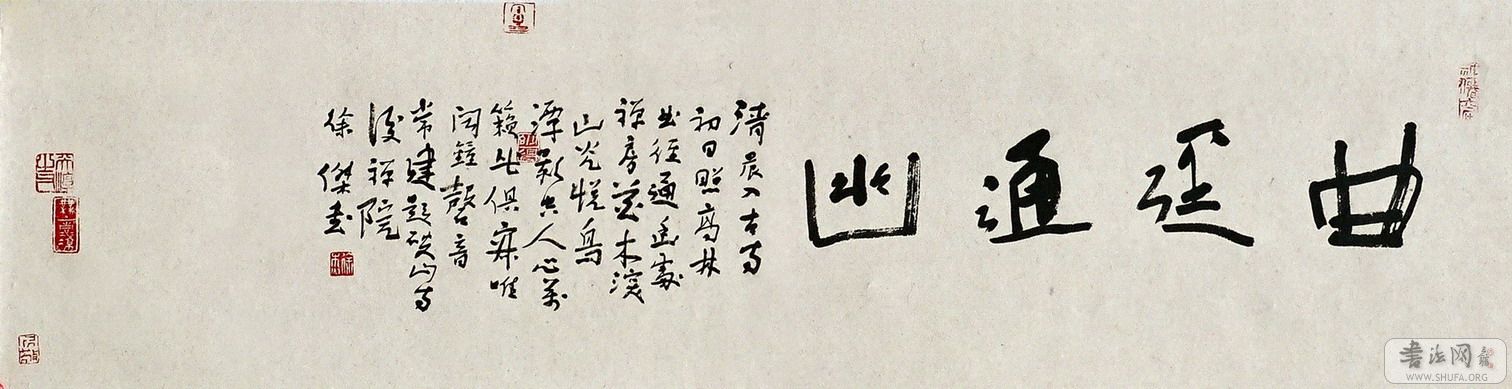 曲径通幽
清晨入古寺
初日照高林
曲径通幽處
禅房花木深
山光悦鳥
潭影空人心萬
籟此俱寂唯
闻鐘磬音
常建題破山寺
後禅院
徐傑書
書法网
WWW.SHUFA.ORG